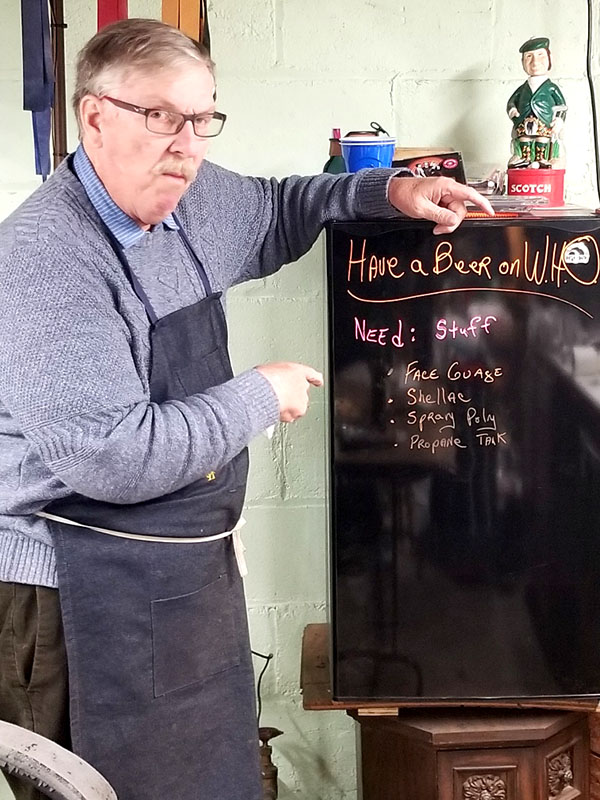 SCOTCH
Have a Beer on W.H.O.
Need: Stuff
· Face Guage
· Shellac
· Spray Poly
· Propane Tank